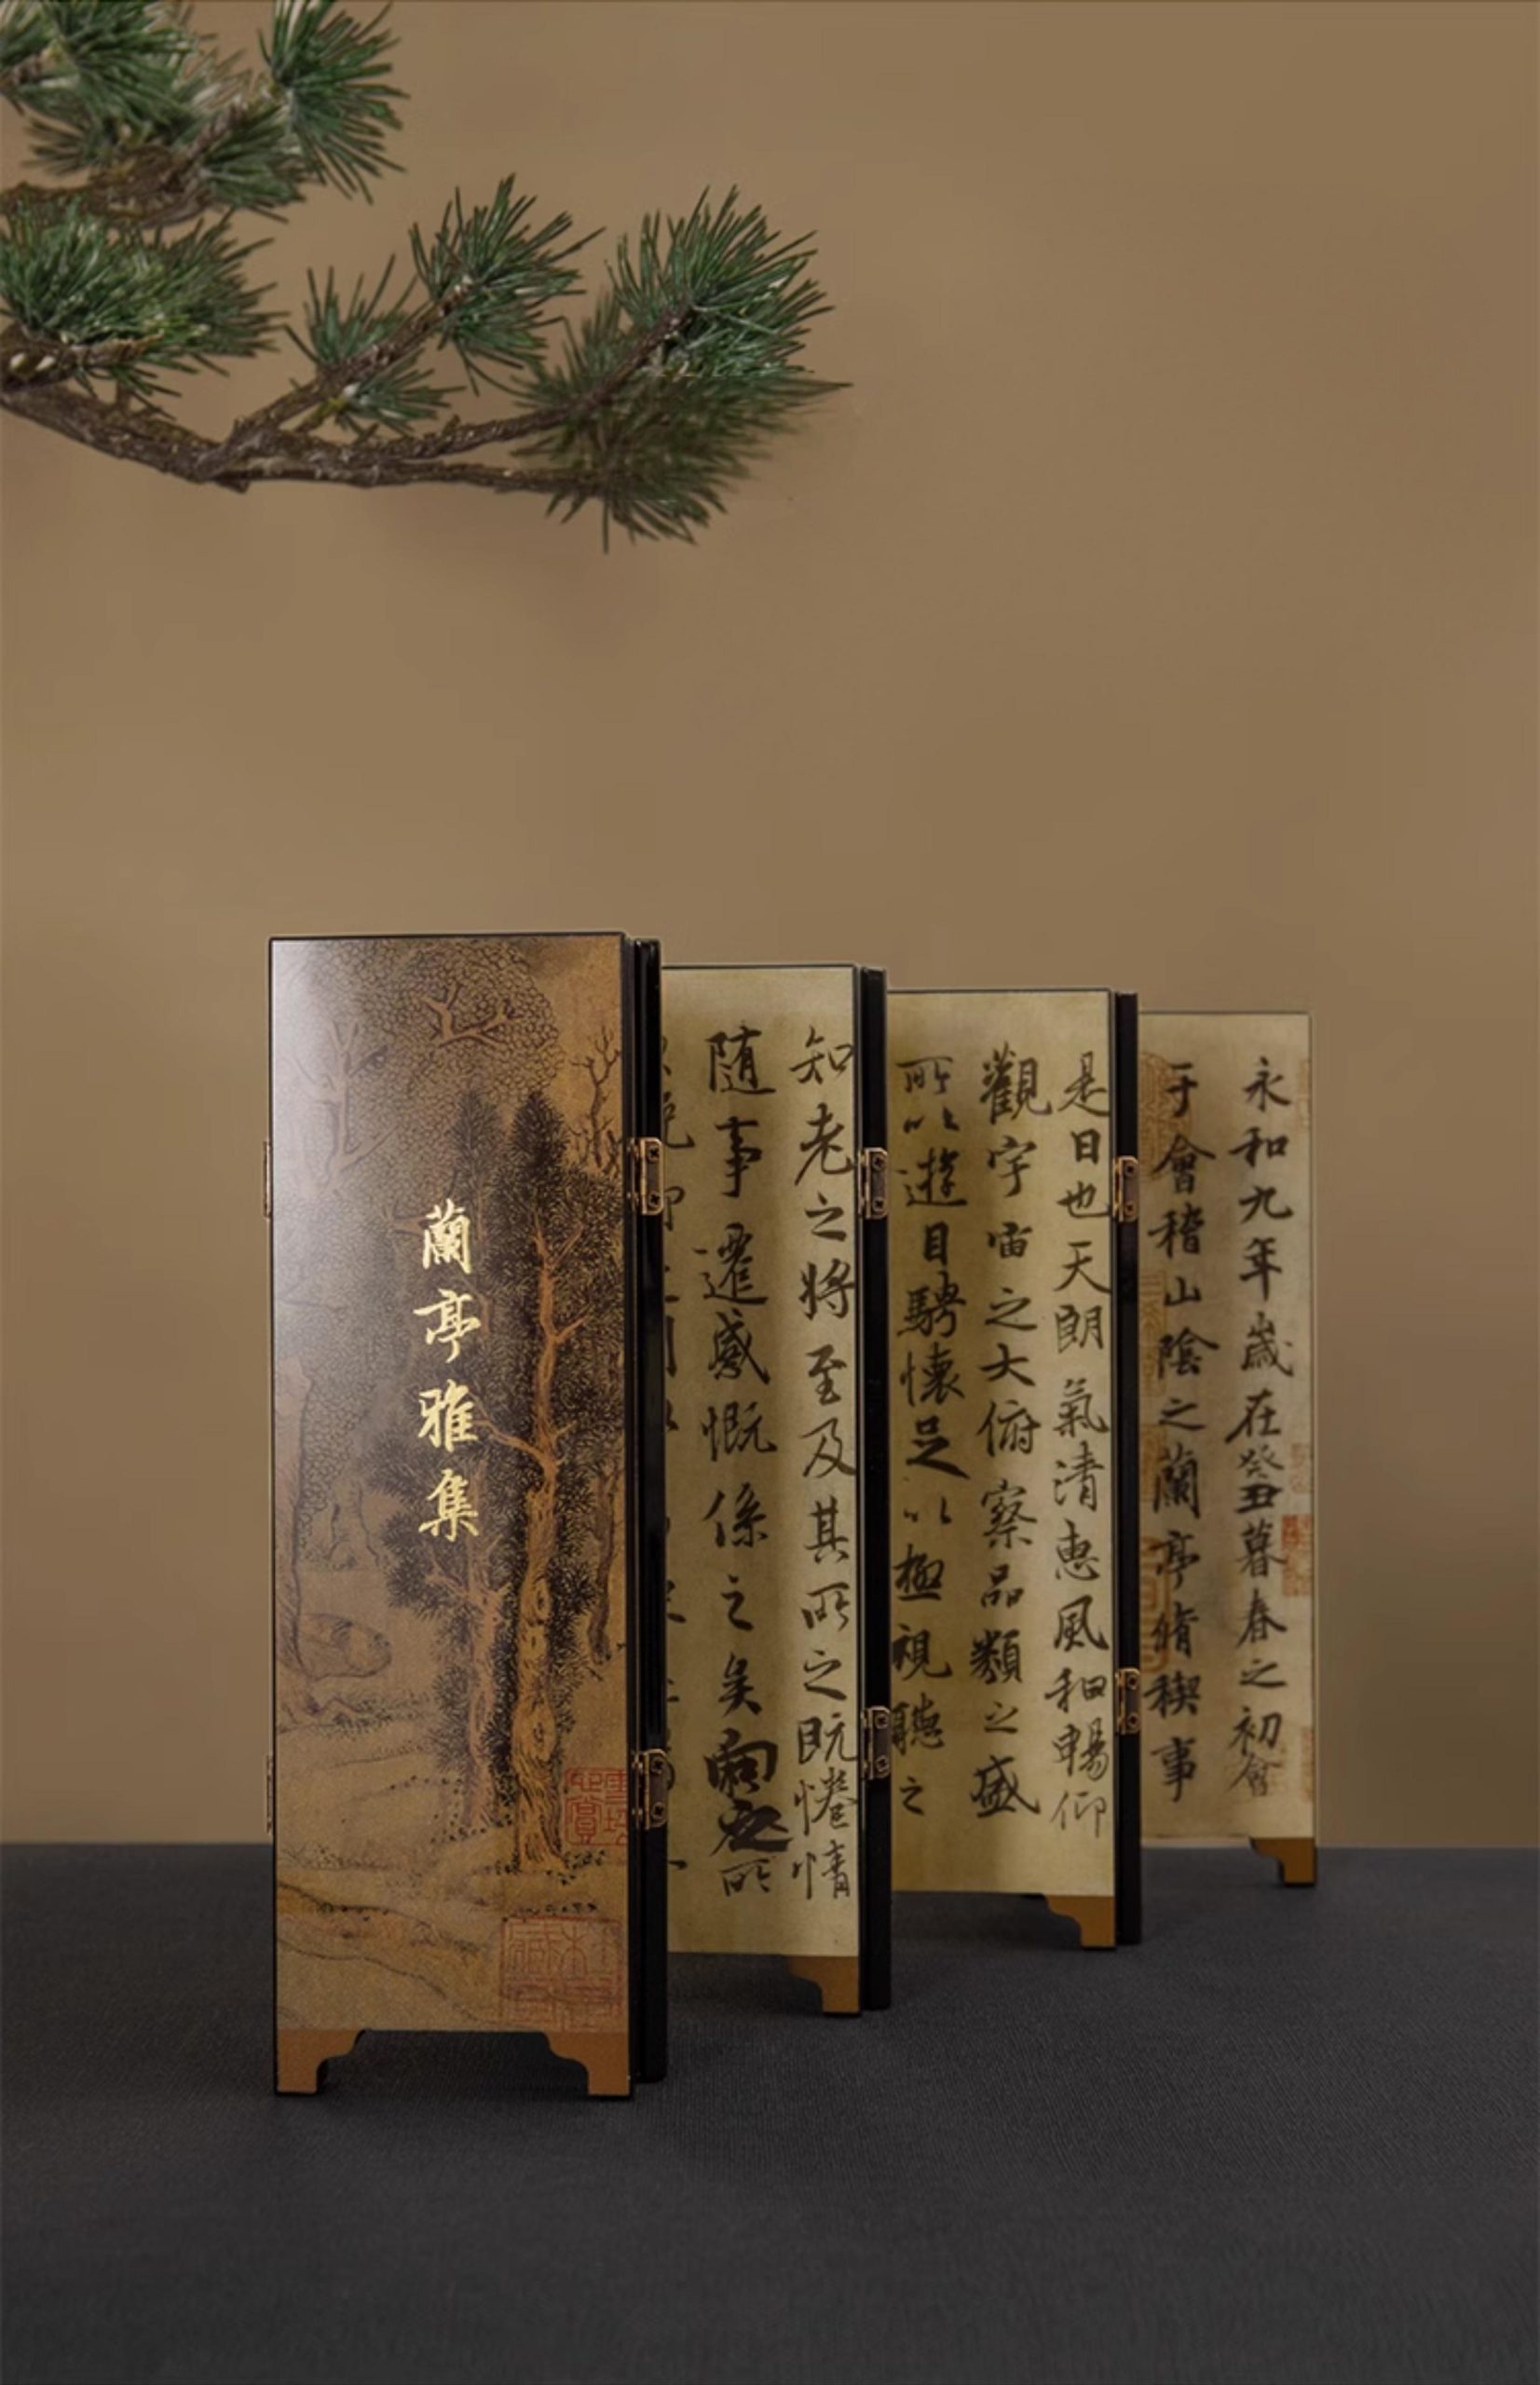 蘭亭雅集
永和九年歲在癸丑暮春之初會
于會稽山陰之蘭亭脩稧事
是日也天朗氣清惠風和暢仰
觀宇宙之大俯察品類之盛
所以遊目騁懷足以極視聽之
知老之將至及其所之既惓情
随事遷感慨係之矣向之所